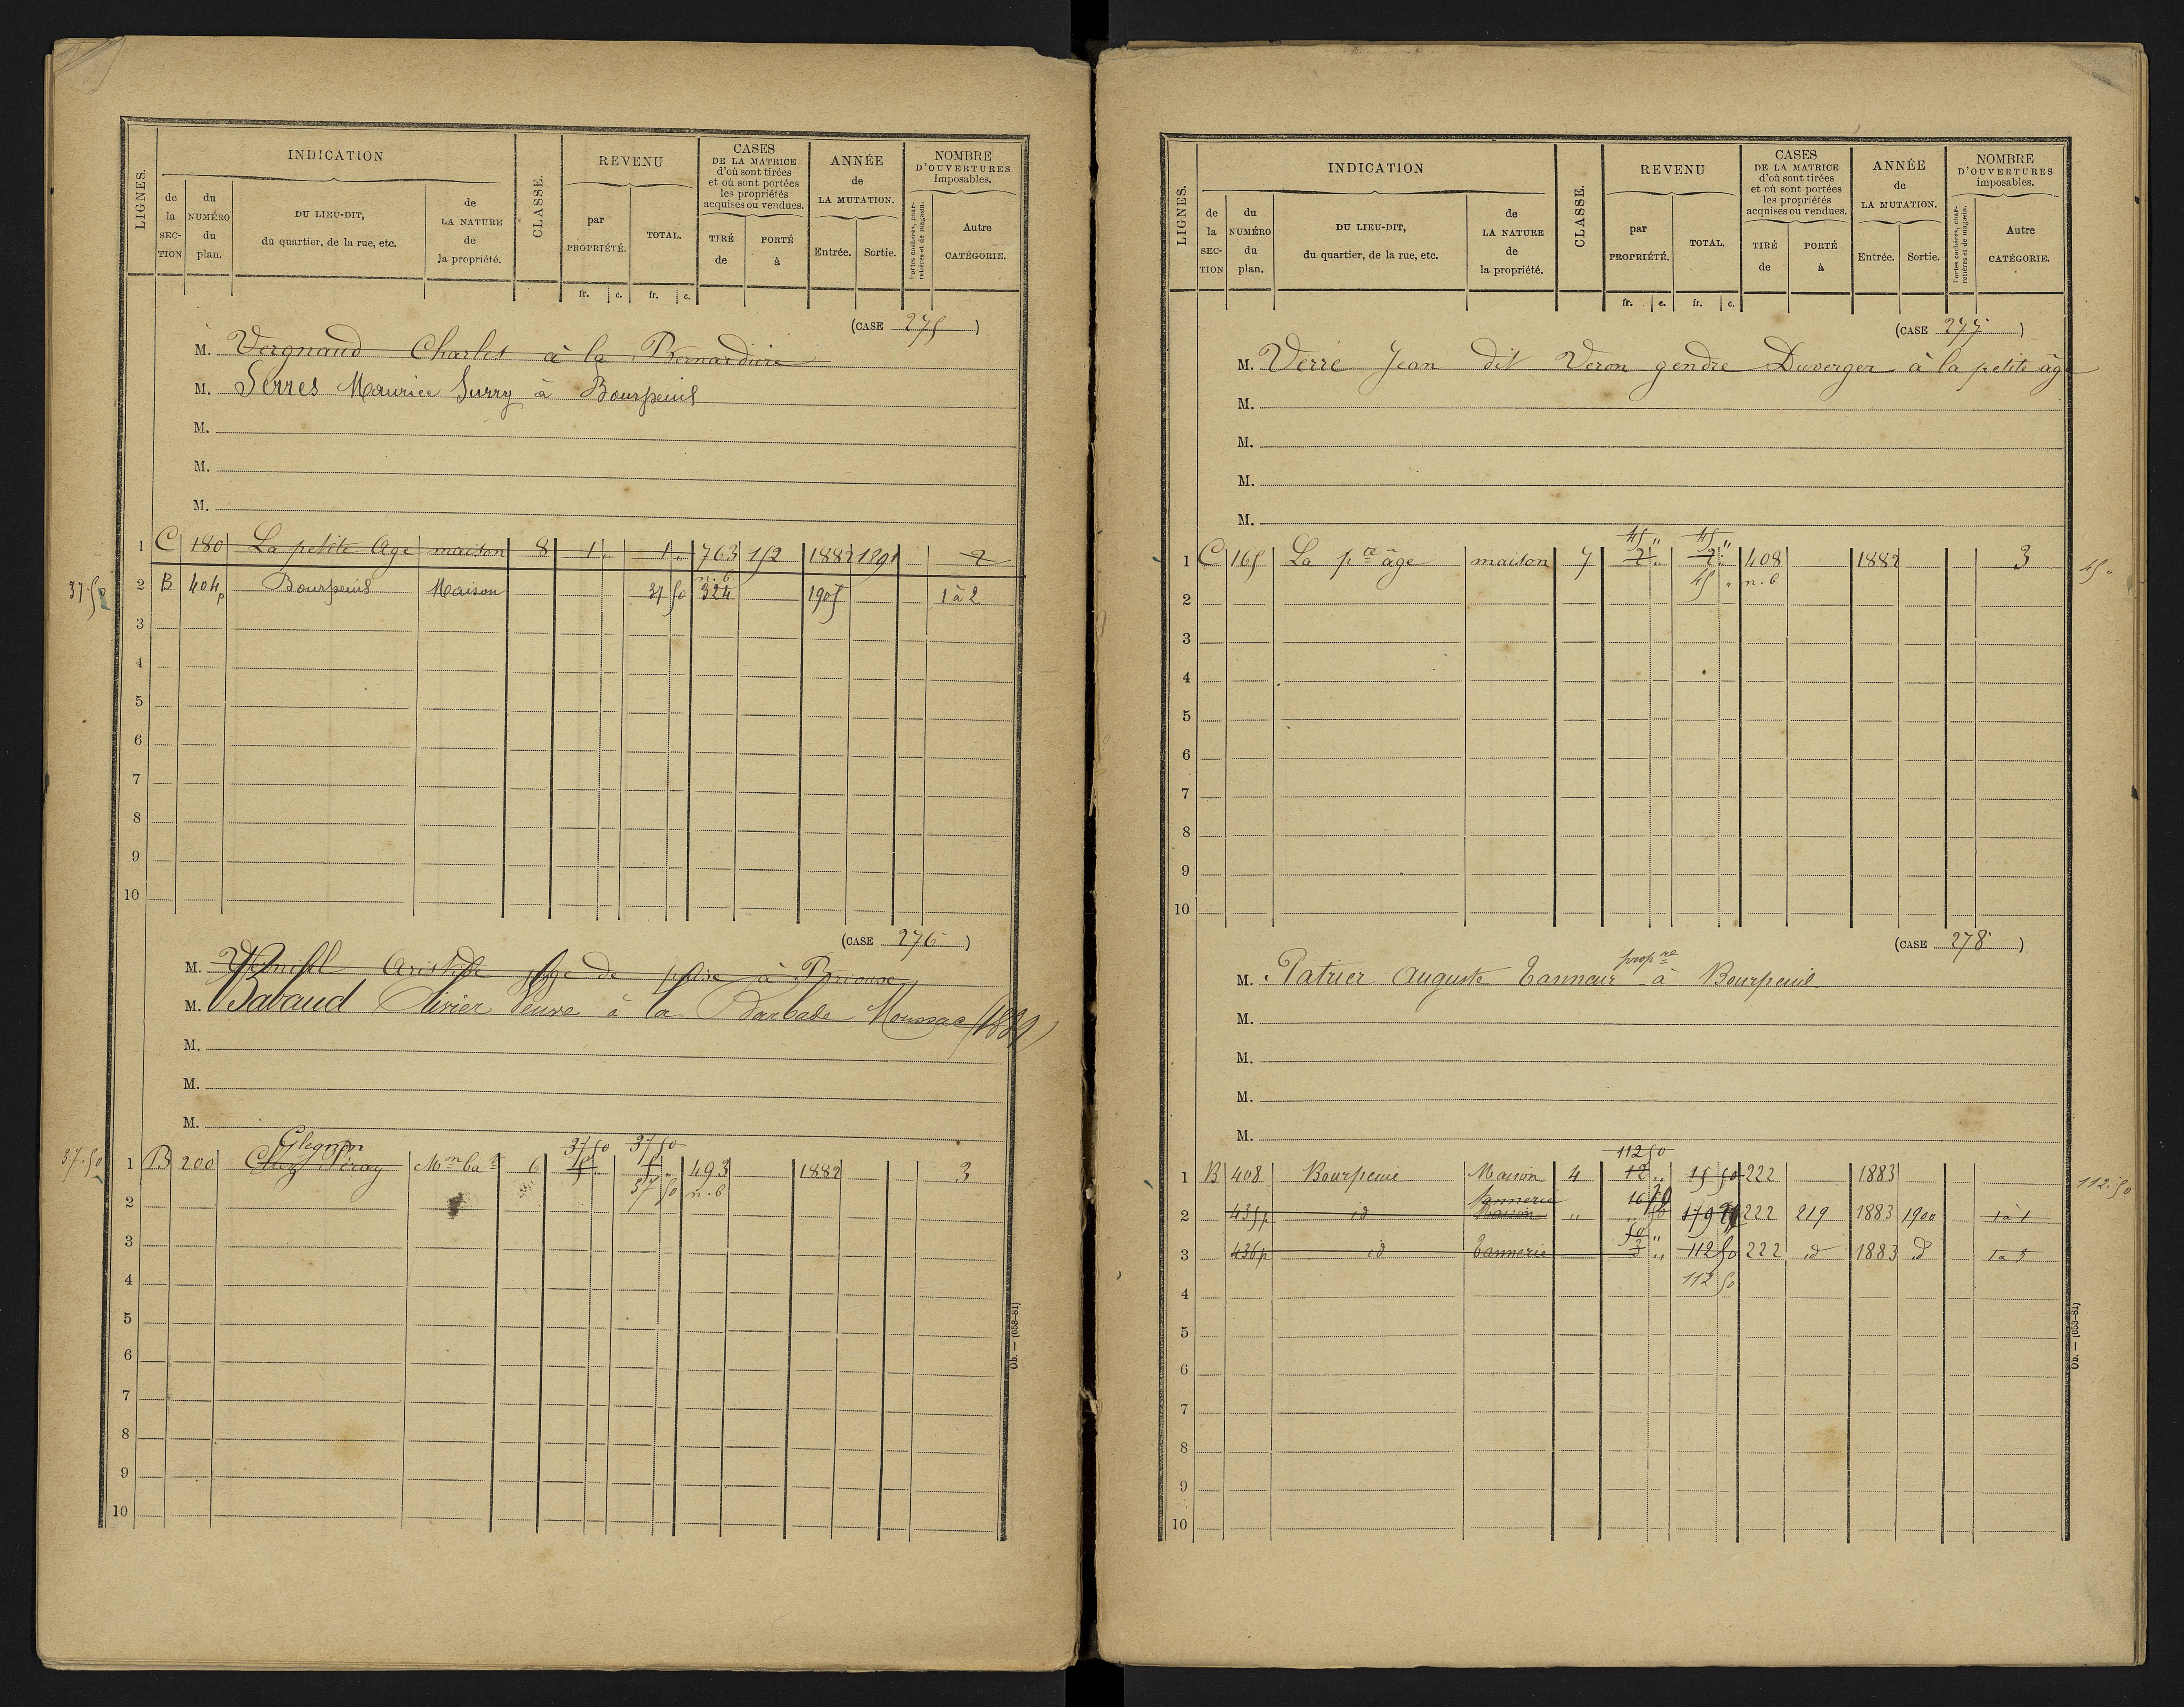 LIGNES. INDICATION CLASSE. REVENU CASES DE LA MATRICE d'où sont tirées et où sont portées les propriétés acquises ou vendues. ANNÉE de LA MUTATION. NOMBRE D'OUVERTURES imposables.
de la SECTION du NUMÉRO du plan. DU LIEU-DIT, du quartier, de la rue, etc. de LA NATURE de la propriété. par PROPRIÉTÉ. TOTAL. TIRÉ de PORTÉ à Entrée. Sortie. Portes cochères, charretières et de magasin. Autre CATÉGORIE.
fr. c. fr. c.
(CASE 275)
M. Vergnaud Charles à la Bernardière
M. Serres Maurice Surry à Bourpeuil
M.
M.
M.
1 C 180 La petite Age maison 8 1 „ 1 „ 763 152 1882 1891 2
n.b.
37.50 2 B 404p Bourpeuil Maison 37 50 324 1905 1 à 2
3
4
5
6
7
8
9
10
(CASE 276)
M. Aristide juge de paix à
M. Babaud Olivier Veuve à la Barbade Moussac
M.
M.
M.
Glegnon 37 50 37 50
37.50 1 B 200 Chez Néray Mon ba 6 493 1882 3
37 50 n.b
2
3
4
5
6
7
8
9
10
Ob. — (653-81)
LIGNES. INDICATION CLASSE. REVENU CASES DE LA MATRICE d'où sont tirées et où sont portées les propriétés acquises ou vendues. ANNÉE de LA MUTATION. NOMBRE D'OUVERTURES imposables.
de la SECTION du NUMÉRO du plan. DU LIEU-DIT, du quartier, de la rue, etc. de LA NATURE de la propriété. par PROPRIÉTÉ. TOTAL. TIRÉ de PORTÉ à Entrée. Sortie. Portes cochères, charretières et de magasin. Autre CATÉGORIE.
fr. c. fr. c.
(CASE 277)
M. Verré Jean dit Veron gendre Duverger à la petite âge
M.
M.
M.
M.
45 „ 45 „
1 C 165 La pte âge maison 7 2 „ 2 „ 408 1882 3 45 „
45 „ n.b
2
3
4
5
6
7
8
9
10
(CASE 278)
propre
M. Patrier Auguste Tanneur à Bourpeuil
M.
M.
M.
M.
112 50
1 B 408 Bourpeuil Maison 4 12 „ 15 50 222 1883 112.50
Tannerie
2 435p id Maison „ 222 219 1883 1900 1 à 1
50 „
3 436p id Tannerie 3 „ 112 50 222 id 1883 id 1 à 5
112 50
4
5
6
7
8
9
10
Ob. — (653-81)